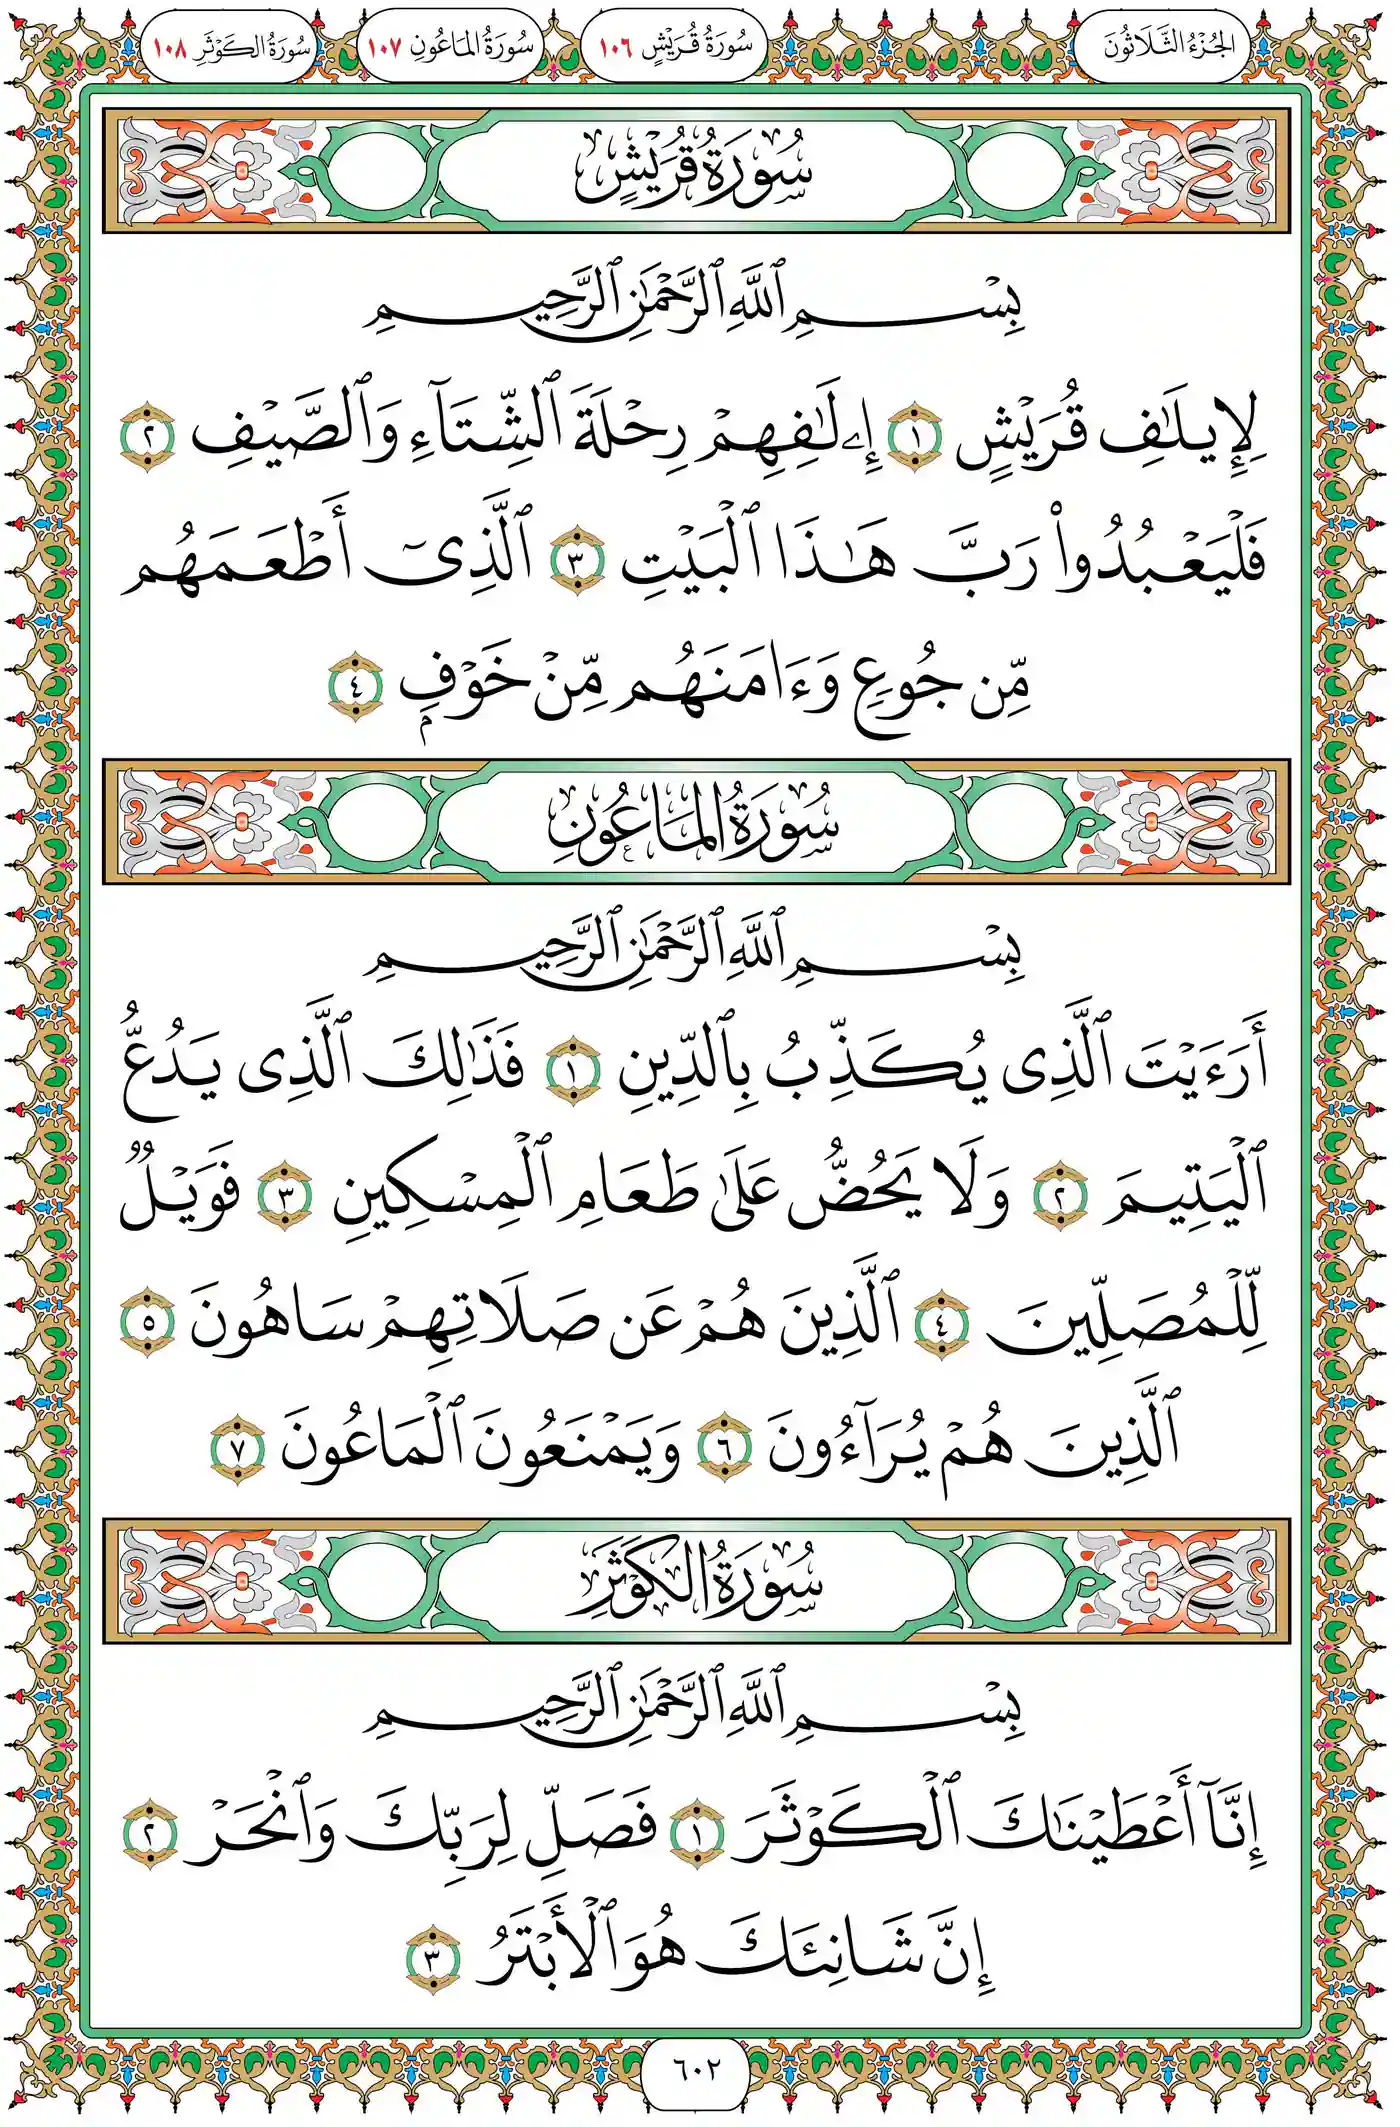 الجُزْءُ الثَّلَاثُونَ سُورَةُ قُرَيْشٍ ١٠٦ سُورَةُ المَاعُونِ ١٠٧ سُورَةُ الكَوْثَرِ ١٠٨
سُورَةُ قُرَيْشٍ
بِسْمِ ٱللَّهِ ٱلرَّحْمَٰنِ ٱلرَّحِيمِ
لِإِيلَٰفِ قُرَيْشٍ ١ إِۦلَٰفِهِمْ رِحْلَةَ ٱلشِّتَآءِ وَٱلصَّيْفِ ٢
فَلْيَعْبُدُوا۟ رَبَّ هَٰذَا ٱلْبَيْتِ ٣ ٱلَّذِىٓ أَطْعَمَهُم
مِّن جُوعٍ وَءَامَنَهُم مِّنْ خَوْفٍۭ ٤
سُورَةُ المَاعُونِ
بِسْمِ ٱللَّهِ ٱلرَّحْمَٰنِ ٱلرَّحِيمِ
أَرَءَيْتَ ٱلَّذِى يُكَذِّبُ بِٱلدِّينِ ١ فَذَٰلِكَ ٱلَّذِى يَدُعُّ
ٱلْيَتِيمَ ٢ وَلَا يَحُضُّ عَلَىٰ طَعَامِ ٱلْمِسْكِينِ ٣ فَوَيْلٌ
لِّلْمُصَلِّينَ ٤ ٱلَّذِينَ هُمْ عَن صَلَاتِهِمْ سَاهُونَ ٥
ٱلَّذِينَ هُمْ يُرَآءُونَ ٦ وَيَمْنَعُونَ ٱلْمَاعُونَ ٧
سُورَةُ الكَوْثَرِ
بِسْمِ ٱللَّهِ ٱلرَّحْمَٰنِ ٱلرَّحِيمِ
إِنَّآ أَعْطَيْنَٰكَ ٱلْكَوْثَرَ ١ فَصَلِّ لِرَبِّكَ وَٱنْحَرْ ٢
إِنَّ شَانِئَكَ هُوَ ٱلْأَبْتَرُ ٣
٦٠٢